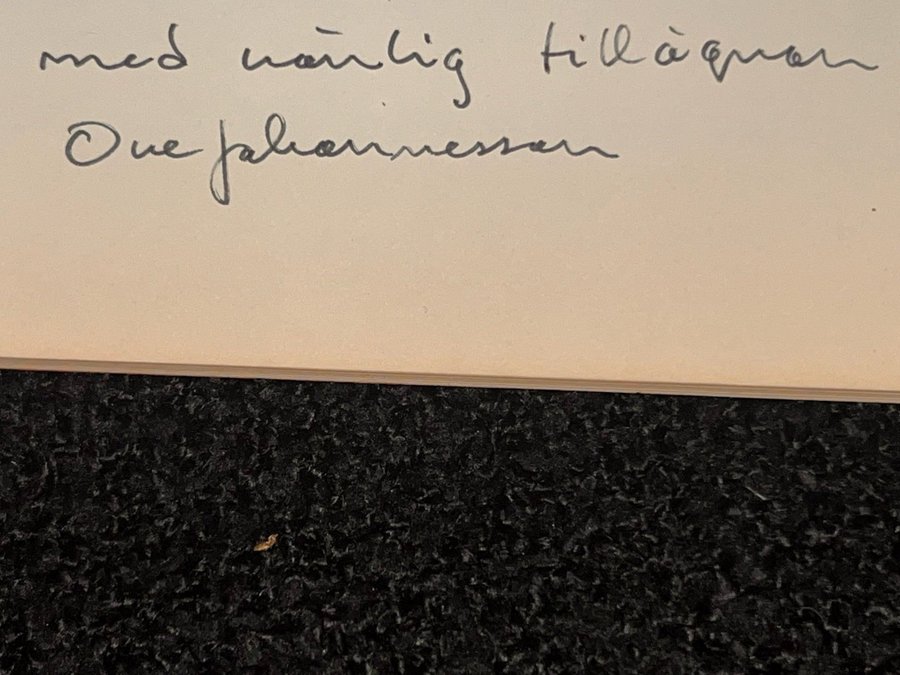 med vänlig tillägnan
Ove Johannesson